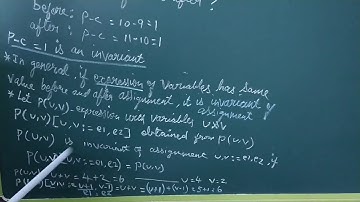 before: P-C = 10-9 = 1
after: P-C = 11-10 = 1
P-C = 1 is an invariant
* In general, if expression of variables has same
value before and after assignment, it is invariant of assignment
* Let P(u,v) - expression with variables u & v
P(u,v)[u,v := e1,e2] obtained from P(u,v)
P(u,v) is invariant of assignment u,v := e1,e2 if
P(u,v)[u,v := e1,e2] = P(u,v)
P(u,v) = u+v = 4+2 = 6 u=4 v=2
P(u,v)[u,v := u+1, v-1] = u+v = (u+1)+(v-1) = 5+1 = 6
e1 = e2